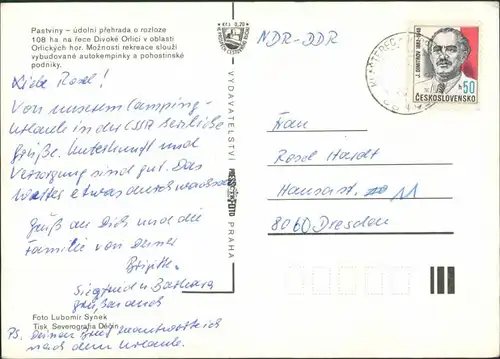 Pastviny – údolní přehrada o rozloze
108 ha na řece Divoké Orlici v oblasti
Orlických hor. Možnosti rekreace slouží
vybudované autokempinky a pohostinské
podniky.
Liebe Rosel!
Von unserem Camping-
urlaub in der CSSR herzliche
Grüße. Unterkunft und
Versorgung sind gut. Das
Wetter etwas durchwachsen
Gruß an Dich und die
Familie von Deiner
Brigitte
Siegfried u. Barbara
Foto Lubomír Synek
Tisk Severografia Děčín
PS. Deinen Brief beantworte ich
nach dem Urlaub.
Kčs 0,70
VYDAVATELSTVÍ PRESSFOTO PRAHA
NDR-DDR
ČESKOSLOVENSKO
50
Frau
Rosel Hardt
Hansastr. 11
8060 Dresden